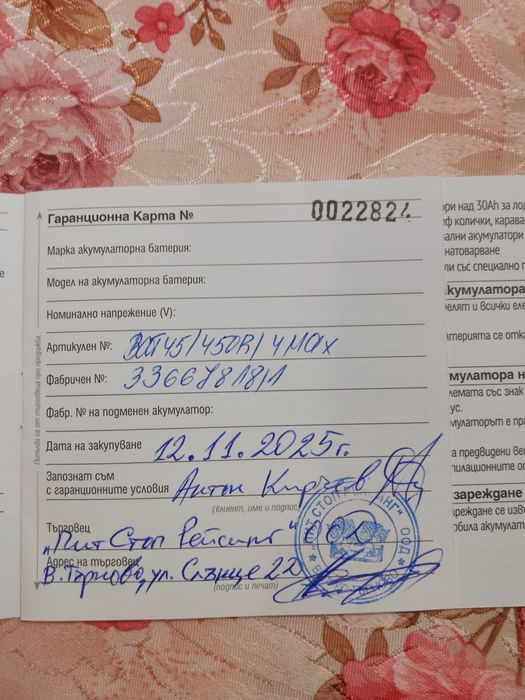 Гаранционна Карта № 0022824
Марка акумулаторна батерия:
Модел на акумулаторна батерия:
Номинално напрежение (V):
Артикулен №: 45/450R/4Max
Фабричен №: 33667818/1
Фабр. № на подменен акумулатор:
Дата на закупуване 12.11.2025г.
Запознат съм
с гаранционните условия Антон Кирчев
(клиент, име и подпис)
Търговец
„Пит Стоп Рейсинг“
Адрес на търговец
В. Търново, ул. Слънце 22
(подпис и печат)
Попълва се от търговеца при продажба
ри над 30Ah за лод
ф колички, карава
ални акумулатори
натоварване
ли със специално п
кумулатора
елят и всички еле
атерията се отка
мулатора н
лемата със знак
ус.
мулаторът е пра
а предвидени вен
пилационните от
зареждане
зареждане се извъ
обила акумулат